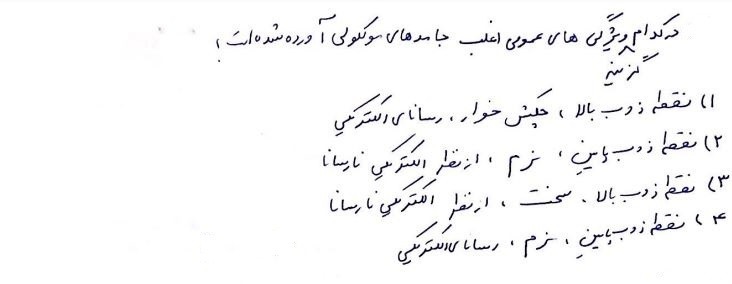 در کدام ویژگی های عمومی اغلب جامدهای مولکولی آورده شده است؟
گزینه
۱) نقطه ذوب بالا ، چکش خوار ، رسانای الکتریکی
۲) نقطه ذوب پایین ، نرم ، از نظر الکتریکی نارسانا
۳) نقطه ذوب بالا ، سخت ، از نظر الکتریکی نارسانا
۴) نقطه ذوب پایین ، نرم ، رسانای الکتریکی